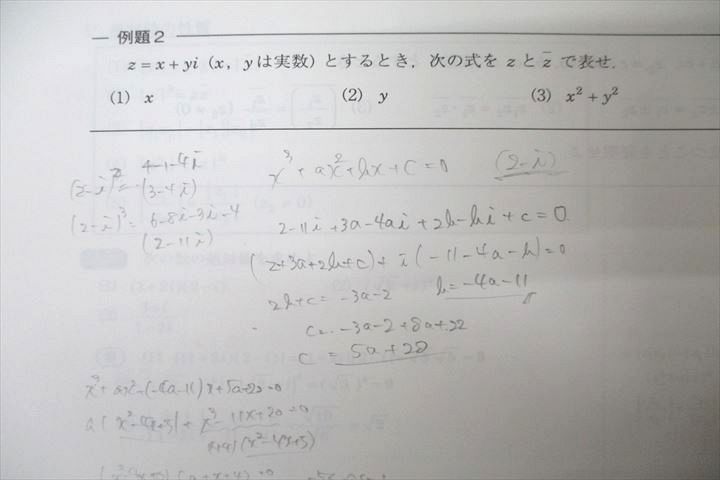 例題2
z=x+yi (x, yは実数) とするとき, 次の式を z と z̄ で表せ.
(1) x (2) y (3) x²+y²
x³+ax²+bx+c=0 (2-i)
(2-i)²= 4-1-4i
(3-4i)
(2-i)³= 6-8i-3i-4
(2-11i)
2-11i+3a-4ai+2b-bi+c=0
(2+3a+2b+c)+i(-11-4a-b)=0
2b+c=-3a-2 b=-4a-11
c=-3a-2+8a+22
c=5a+20
x³+ax²+(-4a-11)x+5a+20=0
a(x²-4x+5)+x³-11x+20=0
(x+4)(x²-4x+5)